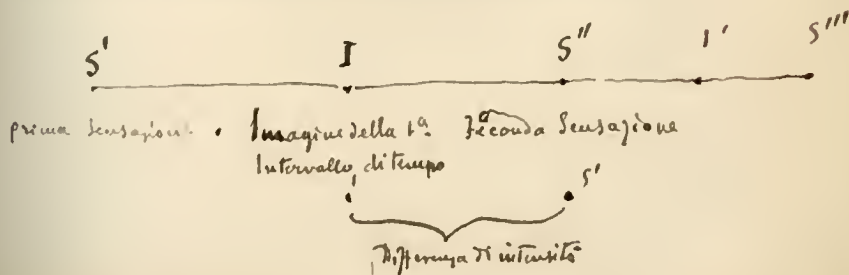 S' I S'' I' S'''
prima Sensazion. Imagine della 1ª Seconda Sensazione
Intervallo di tempo
S'
Differenza di intensità